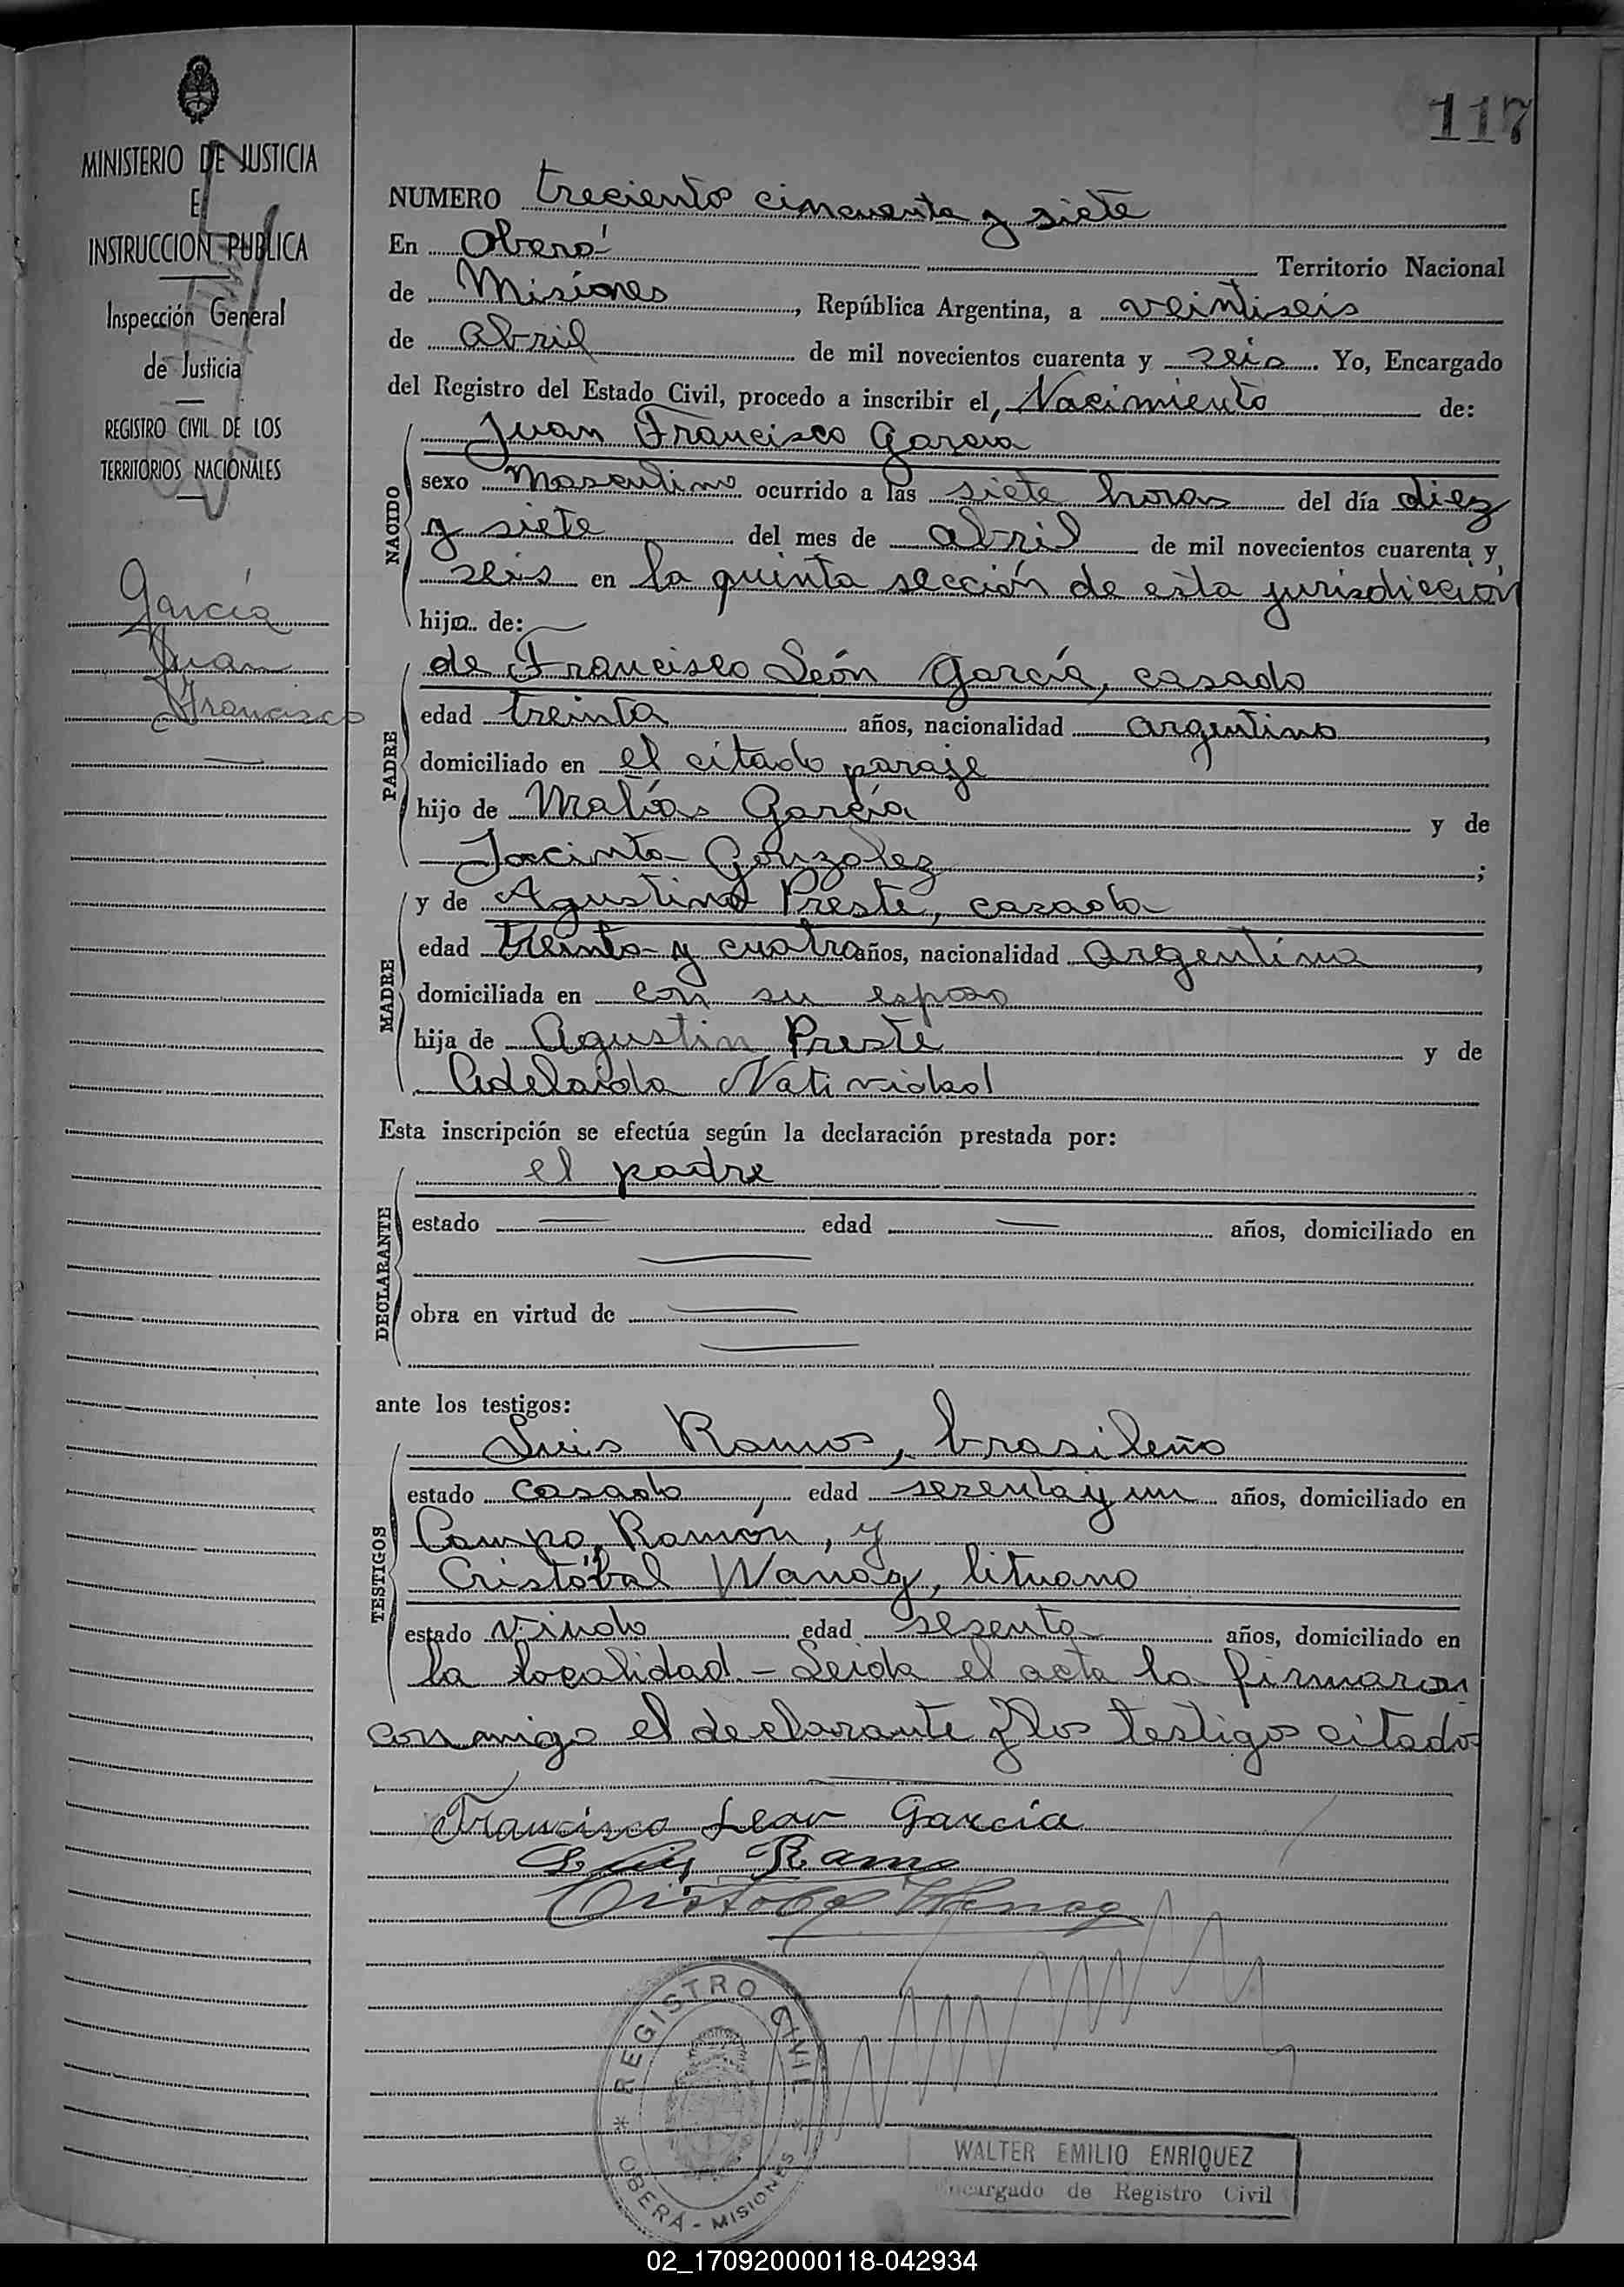 117
MINISTERIO DE JUSTICIA
E
INSTRUCCION PUBLICA
Inspección General
de Justicia
REGISTRO CIVIL DE LOS
TERRITORIOS NACIONALES
García
Juan
Francisco
NUMERO treciento cincuenta y siete
En Oberá Territorio Nacional
de Misiones, República Argentina, a veintiseis
de abril de mil novecientos cuarenta y seis. Yo, Encargado
del Registro del Estado Civil, procedo a inscribir el, Nacimiento de:
NACIDO
Juan Francisco García
sexo Masculino ocurrido a las siete horas del día diez
y siete del mes de abril de mil novecientos cuarenta y
seis en la quinta sección de esta jurisdicción
hijo de:
PADRE
de Francisco León García, casado
edad treinta años, nacionalidad argentino,
domiciliado en el citado paraje
hijo de Matías García y de
Jacinta Gonzalez;
MADRE
y de Agustina Preste, casada
edad treinta y cuatro años, nacionalidad argentina,
domiciliada en con su esposo
hija de Agustin Preste y de
Adelaida Natividad
Esta inscripción se efectúa según la declaración prestada por:
DECLARANTE
el padre
estado edad años, domiciliado en
obra en virtud de
ante los testigos:
TESTIGOS
Luis Ramos, brasileño
estado casado, edad sesenta y un años, domiciliado en
Campo Ramón, y
Cristóbal Wanag, lituano
estado viudo edad sesenta años, domiciliado en
la localidad - Leida el acta la firmaron
conmigo el declarante y los testigos citados
Francisco Leon García
Luis Ramo
Cristobal Wanag
REGISTRO CIVIL
OBERÁ - MISIONES
WALTER EMILIO ENRIQUEZ
Encargado de Registro Civil
02_170920000118-042934